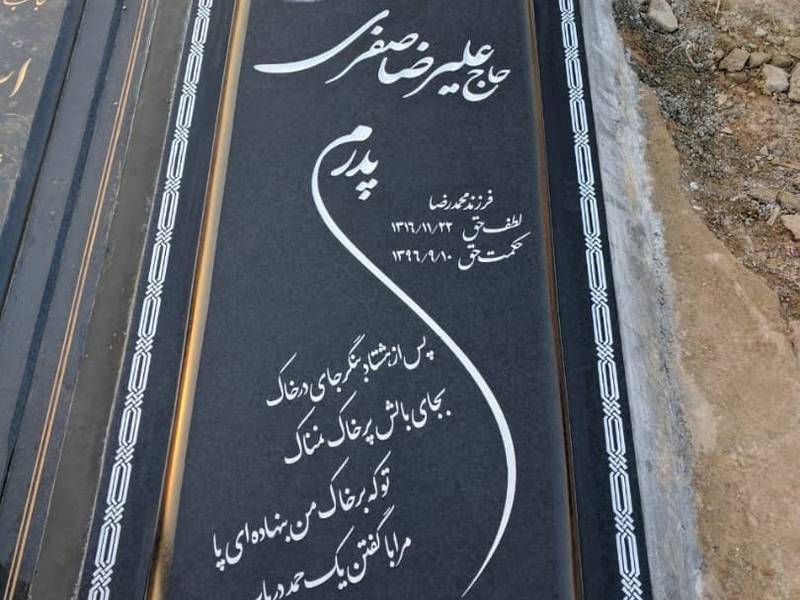 حاج علیرضا صفری
پدرم
فرزند محمدرضا
لطف حق ۱۳۱۶/۱۱/۲۲
حکمت حق ۱۳۹۶/۹/۱۰
پس از هشتاد بنگر جای در خاک
بجای بالش پر خاک نمناک
تو که بر خاک من بنهاده ای پا
مرا با گفتن یک حمد دریاب